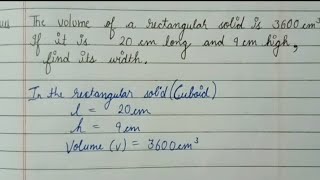 The volume of a rectangular solid is 3600 cm³
If it is 20 cm long and 9 cm high,
find its width.
In the rectongular solid (Cuboid)
l = 20 cm
h = 9 cm
Volume (v) = 3600 cm³